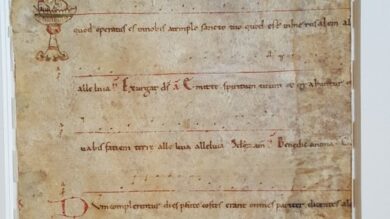 quod operatus es in nobis a templo sancto tuo quod est in hierusalem al
alleluia Exurgat ds Emitte spiritum tuum et
uabis faciem terre alleluia alleluia Benedic anima
Dum complerentur dies pentecostes erant omnes pariter dicentes al